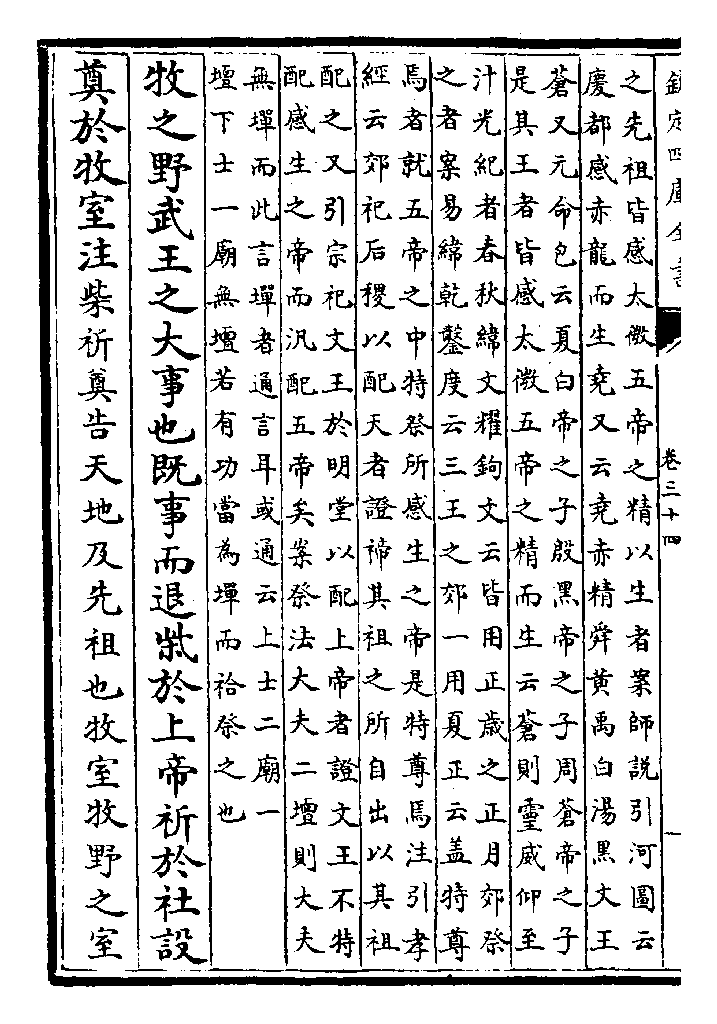 欽定四庫全書
卷三十四
之先祖皆感太微五帝之精以生者案師說引河圖云
慶都感赤龍而生堯又云堯赤精舜黃禹白湯黑文王
蒼又元命包云夏白帝之子殷黑帝之子周蒼帝之子
是其王者皆感太微五帝之精而生云蒼則靈威仰至
汁光紀者春秋緯文耀鉤文云皆用正歲之正月郊祭
之者案易緯乾鑿度云三王之郊一用夏正云盖特尊
焉者就五帝之中特祭所感生之帝是特尊焉注引孝
經云郊祀后稷以配天者證禘其祖之所自出以其祖
配之又引宗祀文王於明堂以配上帝者證文王不特
配感生之帝而汎配五帝矣案祭法大夫二壇則大夫
無墠而此言墠者通言耳或通云上士二廟一
壇下士一廟無壇若有功當為墠而祫祭之也
牧之野武王之大事也既事而退柴於上帝祈於社設
奠於牧室注柴祈奠告天地及先祖也牧室牧野之室